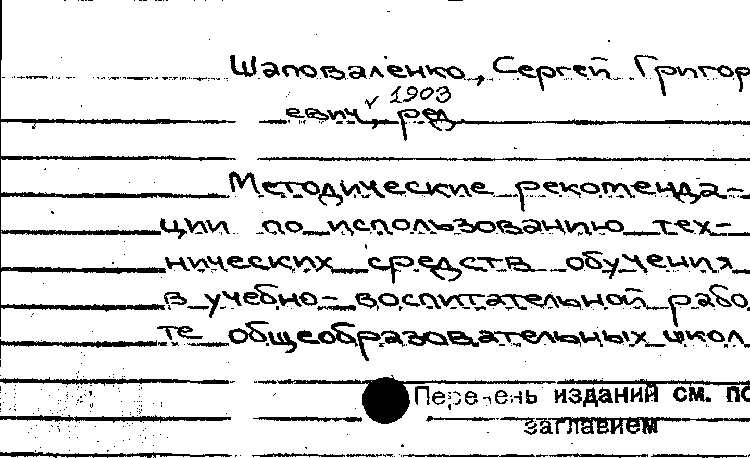 Шаповаленко, Сергей Григор
1903
евич, ред.
Методические рекоменда-
ции по использованию тех-
нических средств обучения
в учебно-воспитательной рабо
те общеобразовательных школ
Перечень изданий см. по
заглавием